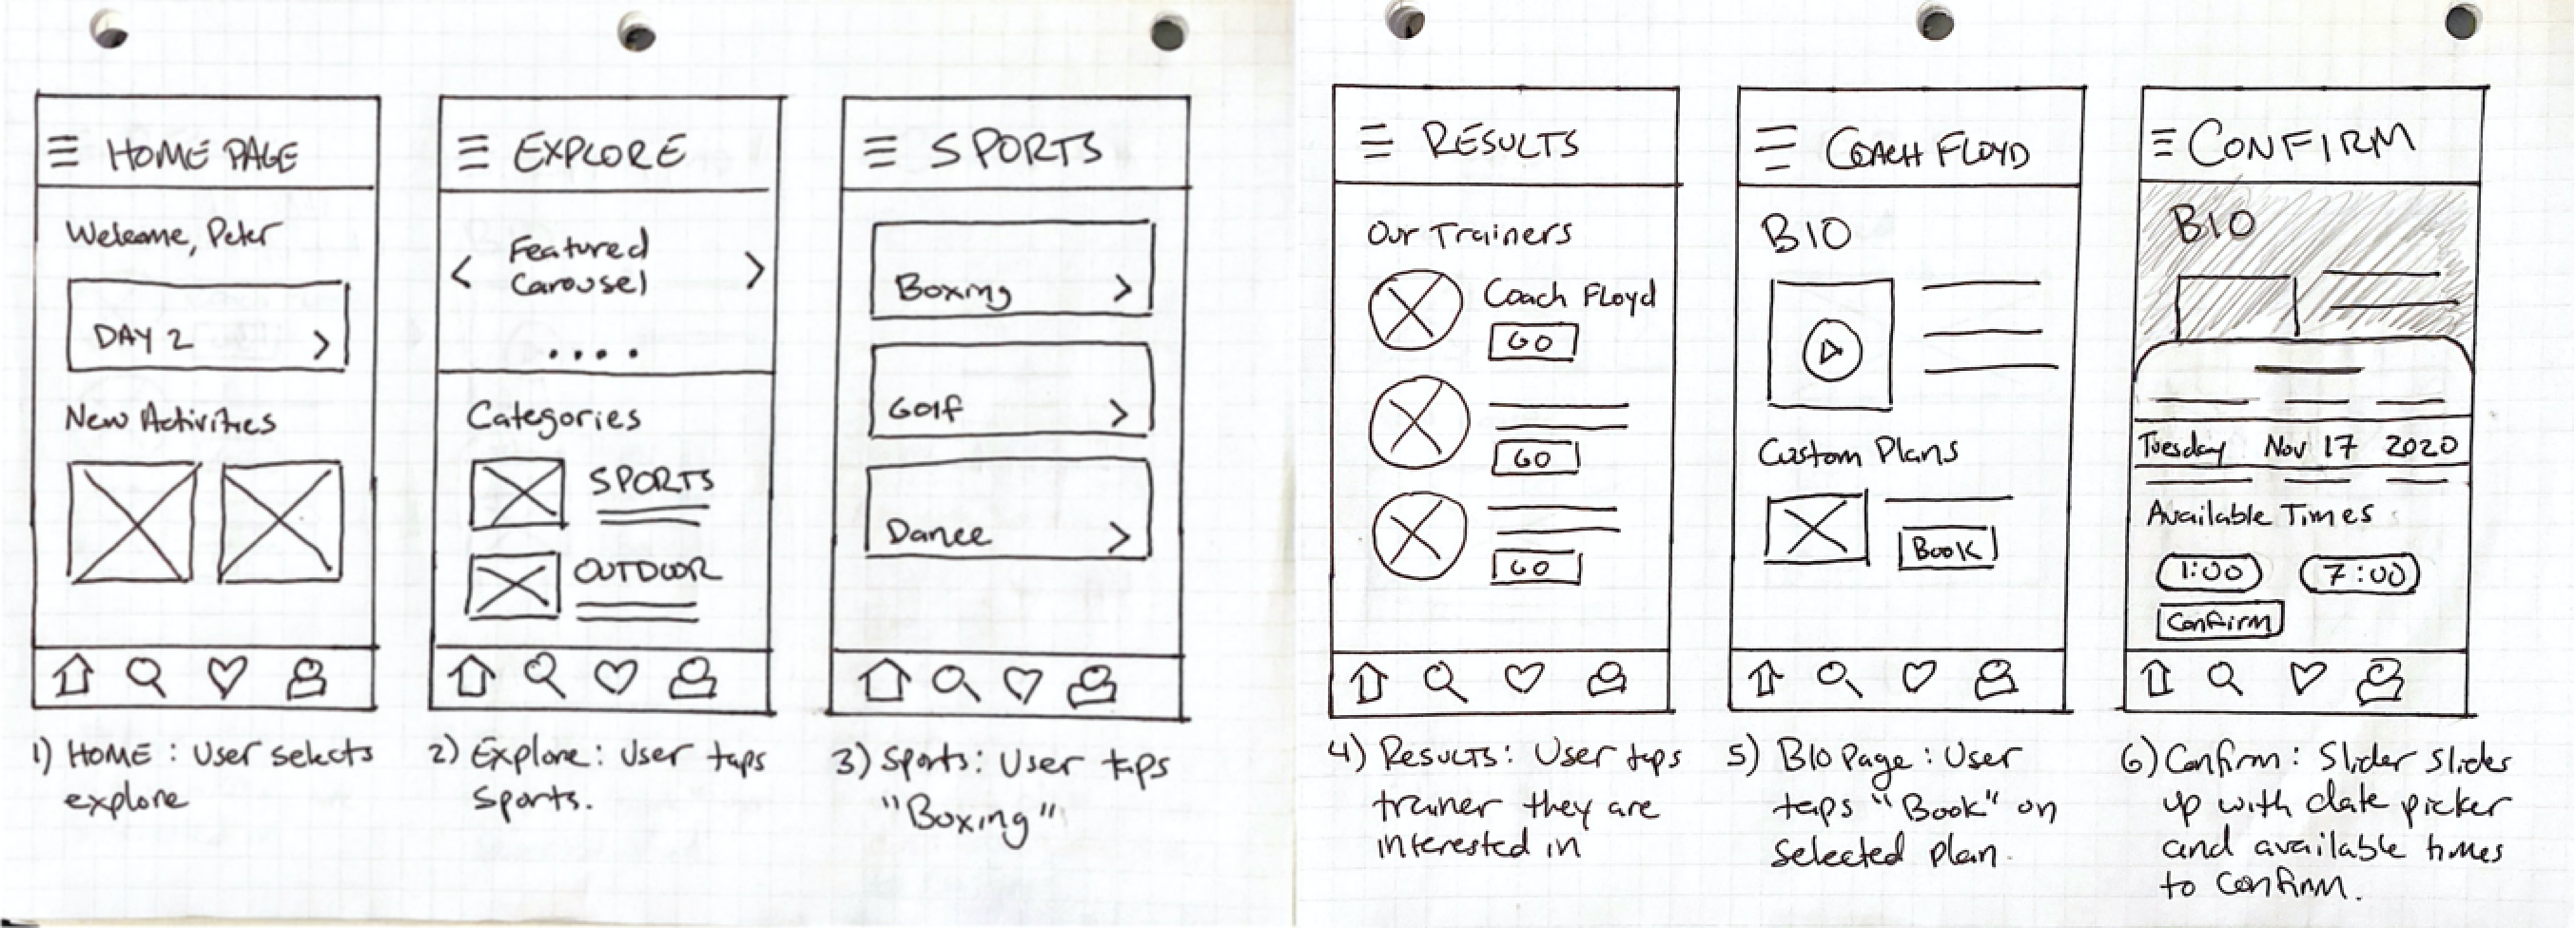 HOME PAGE
Welcome, Peter
DAY 2
New Activities
1) HOME : User selects
explore
EXPLORE
Featured
Carousel
Categories
SPORTS
OUTDOOR
2) Explore: User taps
Sports.
SPORTS
Boxing
Golf
Dance
3) Sports: User taps
"Boxing"
RESULTS
Our Trainers
Coach Floyd
GO
GO
GO
4) Results: User taps
trainer they are
interested in
COACH FLOYD
BIO
Custom Plans
Book
5) BIO Page: User
taps "Book" on
selected plan.
CONFIRM
BIO
Tuesday Nov 17 2020
Available Times
1:00 7:00
Confirm
6) Confirm: Slider slides
up with date picker
and available times
to confirm.